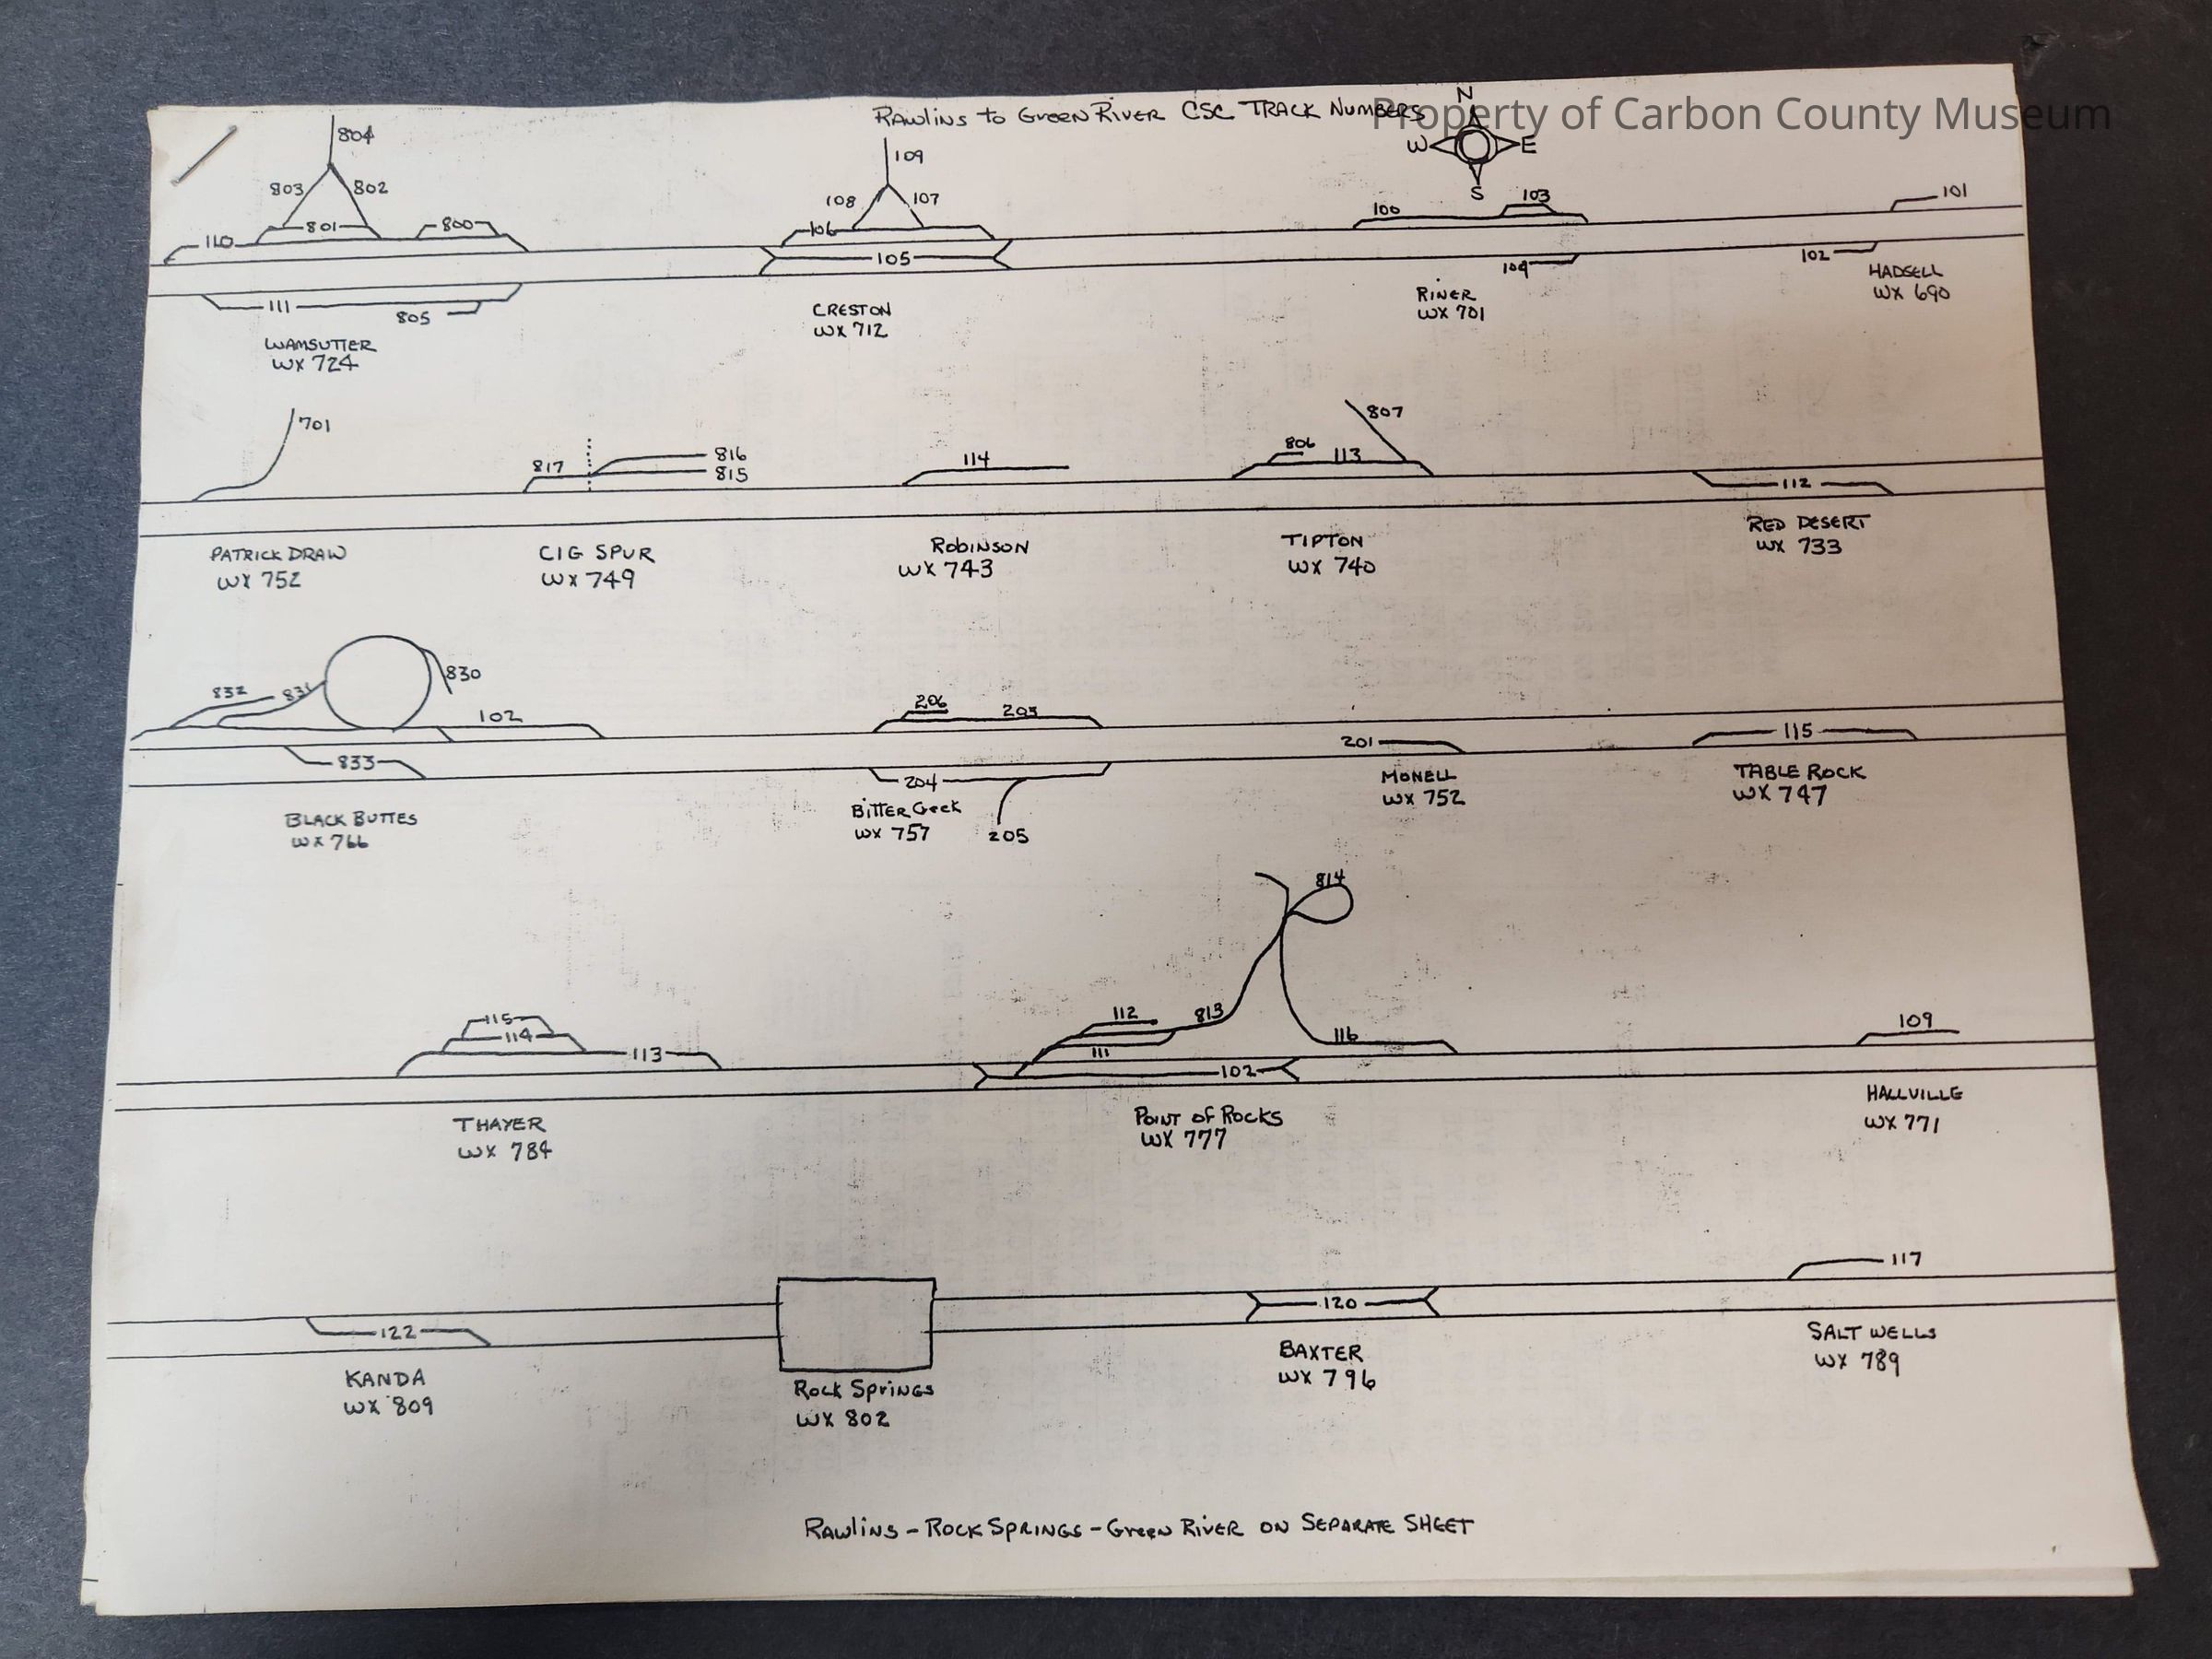 Rawlins to Green River CSC Track Numbers
Property of Carbon County Museum
N
W E
S
804
803 802
110 801 800
111 805
WAMSUTTER
WX 724
109
108 107
106
105
CRESTON
WX 712
100 103
104
RINER
WX 701
101
102
HADSELL
WX 690
701
PATRICK DRAW
WX 752
817 816
815
CIG SPUR
WX 749
114
ROBINSON
WX 743
807
806 113
TIPTON
WX 740
112
RED DESERT
WX 733
832 831 830
102
833
BLACK BUTTES
WX 766
206 203
204
205
Bitter Creek
WX 757
201
MONELL
WX 752
115
TABLE ROCK
WX 747
115
114
113
THAYER
WX 784
814
112 813
111 116
102
POINT of ROCKS
WX 777
109
HALLVILLE
WX 771
122
KANDA
WX 809
Rock Springs
WX 802
120
BAXTER
WX 796
117
SALT WELLS
WX 789
Rawlins - Rock Springs - Green River on Separate Sheet